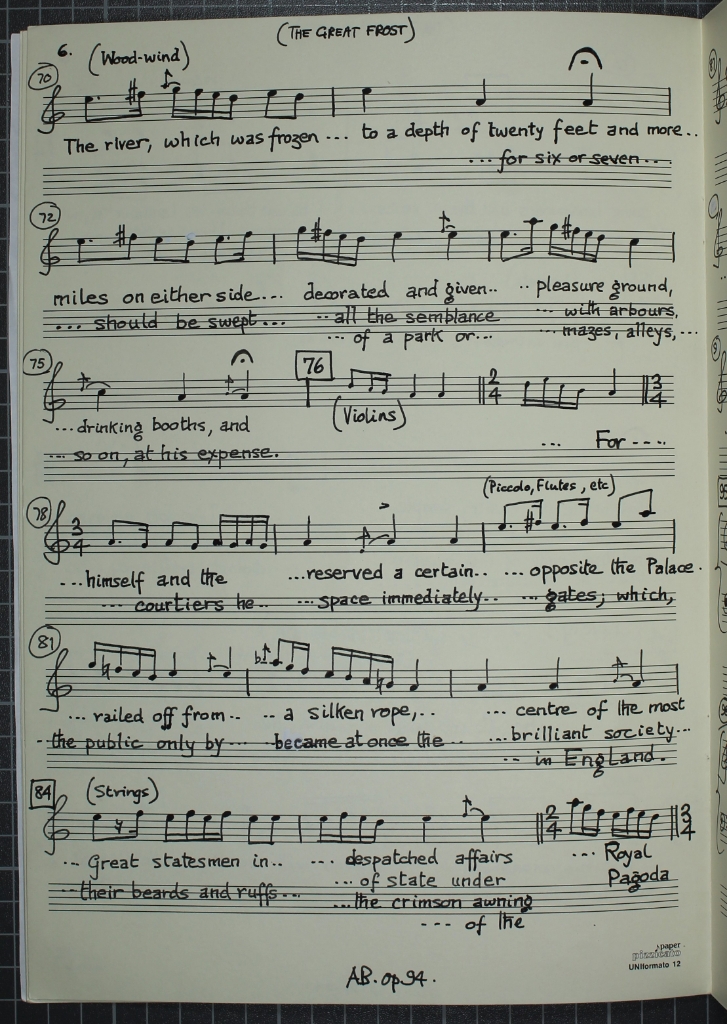 (THE GREAT FROST)
6.
(Wood-wind)
70
The river, which was frozen ... to a depth of twenty feet and more..
... for six or seven ...
72
miles on either side... decorated and given.. .. pleasure ground,
... should be swept... .. all the semblance ... with arbours,
... of a park or... ... mazes, alleys, ...
75
76
(Violins)
2 4
3 4
...drinking booths, and
... so on, at his expense.
... For ....
(Piccolo, Flutes, etc)
78
3 4
...himself and the ...reserved a certain.. ... opposite the Palace.
... courtiers he ... ... space immediately.. ... gates; which,
81
... railed off from .. .. a silken rope, .. ... centre of the most
.. the public only by ... became at once the .. ... brilliant society...
.. in England.
84
(Strings)
2 4
3 4
... Great statesmen in.. ... despatched affairs ... Royal
... their beards and ruffs... ... of state under Pagoda
... the crimson awning
... of the
paper
pizzicato
UNIformato 12
AB. op 94.